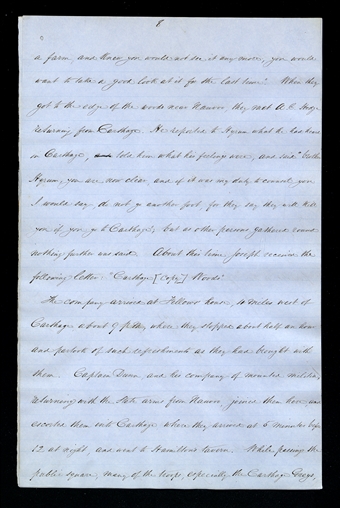 8
a farm, and knew you would not see it any more, you would
want to take a good look at it for the last time." When they
got to the edge of the woods near Nauvoo, they met A. C. Hodge
returning from Carthage. He reported to Hyrum what he had heard
in Carthage, told him what his feelings were, and said "Brother
Hyrum, you are now clear, and if it was my duty to counsel you
I would say, do not go another foot, for they say they will kill
you if you go to Carthage", but as other persons gathered round
nothing further was said. About this time Joseph received the
following letter: "Carthage [Copy] Woods"
The company arrived at Fellows' house, 4 miles west of
Carthage about 9 p.m., where they stopped about half an hour
and partook of such refreshments as they had brought with
them. Captain Dunn and his company of mounted militia,
returning with the State arms from Nauvoo joined them here, and
escorted them into Carthage where they arrived at 5 minutes before
12 at night, and went to Hamilton's tavern. While passing the
public square, many of the troops, especially the Carthage Greys,